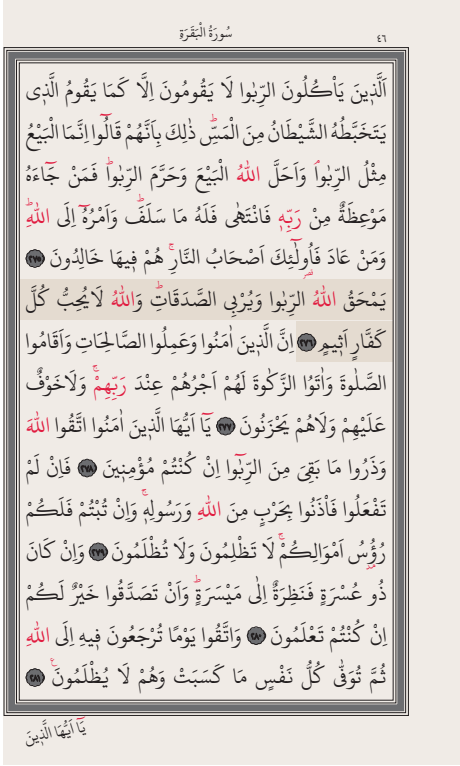 سُورَةُ الْبَقَرَةِ
٤٦
اَلَّذ۪ينَ يَأْكُلُونَ الرِّبٰوا لَا يَقُومُونَ اِلَّا كَمَا يَقُومُ الَّذ۪ى
يَتَخَبَّطُهُ الشَّيْطَانُ مِنَ الْمَسِّۜ ذٰلِكَ بِاَنَّهُمْ قَالُٓوا اِنَّمَا الْبَيْعُ
مِثْلُ الرِّبٰواۢ وَاَحَلَّ اللّٰهُ الْبَيْعَ وَحَرَّمَ الرِّبٰواۜ فَمَنْ جَٓاءَهُ
مَوْعِظَةٌ مِنْ رَبِّه۪ فَانْتَهٰى فَلَهُ مَا سَلَفَۜ وَاَمْرُهُٓ اِلَى اللّٰهِۜ
وَمَنْ عَادَ فَاُولٰٓئِكَ اَصْحَابُ النَّارِۚ هُمْ ف۪يهَا خَالِدُونَ ﴿٢٧٥﴾
يَمْحَقُ اللّٰهُ الرِّبٰوا وَيُرْبِى الصَّدَقَاتِۜ وَاللّٰهُ لَا يُحِبُّ كُلَّ
كَفَّارٍ اَث۪يمٍ ﴿٢٧٦﴾ اِنَّ الَّذ۪ينَ اٰمَنُوا وَعَمِلُوا الصَّالِحَاتِ وَاَقَامُوا
الصَّلٰوةَ وَاٰتَوُا الزَّكٰوةَ لَهُمْ اَجْرُهُمْ عِنْدَ رَبِّهِمْۚ وَلَا خَوْفٌ
عَلَيْهِمْ وَلَا هُمْ يَحْزَنُونَ ﴿٢٧٧﴾ يَٓا اَيُّهَا الَّذ۪ينَ اٰمَنُوا اتَّقُوا اللّٰهَ
وَذَرُوا مَا بَقِىَ مِنَ الرِّبٰٓوا اِنْ كُنْتُمْ مُؤْمِن۪ينَ ﴿٢٧٨﴾ فَاِنْ لَمْ
تَفْعَلُوا فَأْذَنُوا بِحَرْبٍ مِنَ اللّٰهِ وَرَسُولِه۪ۚ وَاِنْ تُبْتُمْ فَلَكُمْ
رُؤُ۫سُ اَمْوَالِكُمْۚ لَا تَظْلِمُونَ وَلَا تُظْلَمُونَ ﴿٢٧٩﴾ وَاِنْ كَانَ
ذُو عُسْرَةٍ فَنَظِرَةٌ اِلٰى مَيْسَرَةٍۜ وَاَنْ تَصَدَّقُوا خَيْرٌ لَكُمْ
اِنْ كُنْتُمْ تَعْلَمُونَ ﴿٢٨٠﴾ وَاتَّقُوا يَوْمًا تُرْجَعُونَ ف۪يهِ اِلَى اللّٰهِ
ثُمَّ تُوَفّٰى كُلُّ نَفْسٍ مَا كَسَبَتْ وَهُمْ لَا يُظْلَمُونَ۟ ﴿٢٨١﴾
يَٓا اَيُّهَا الَّذ۪ينَ